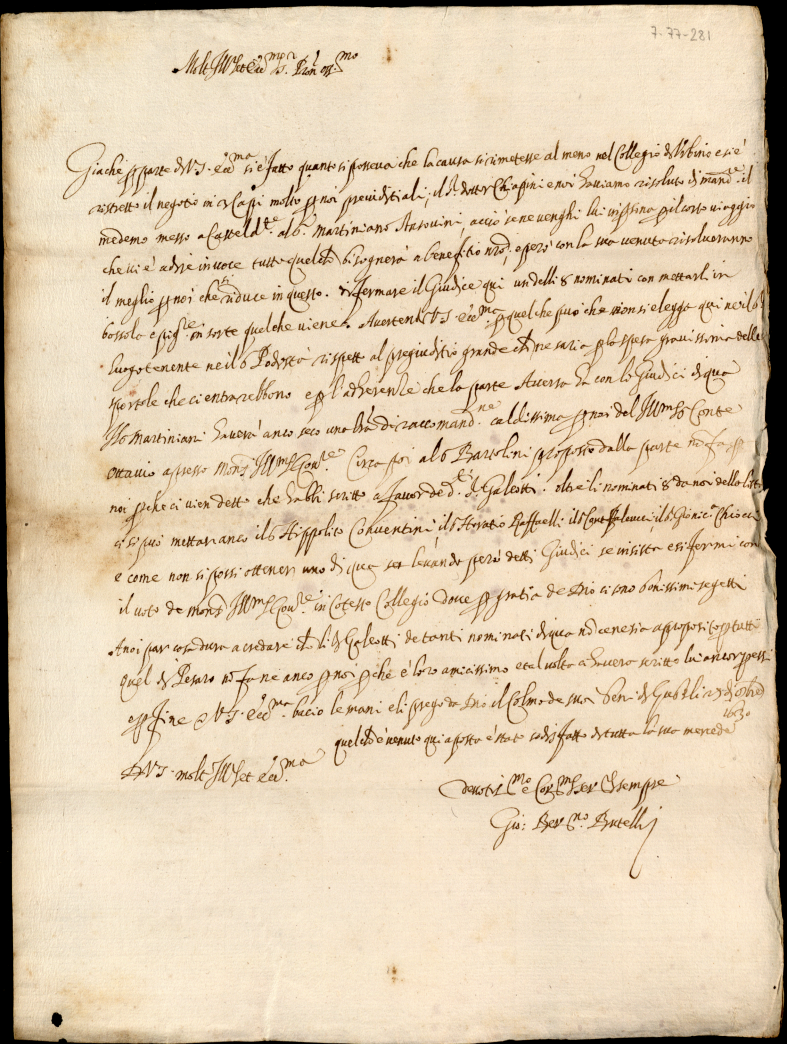 7-77-281
Molt Ill.re et Ecc.mo S.r P.ron oss.mo
Giache per parte di V.S. ecc.ma si è fatto quanto si posseva che la causa si rimetesse al meno nel Collegio d'Urbino e si è
ristretto il negotio in Cappi molto per noi prejuditiali, il S. dottor Chiapini e noi haviamo risoluto di mand.e il
medemo messo a Casteld.te al S. Martiniano Ansovini, acciò se ne venghi lui insino per il corto viaggio
che vi è a dire in voce tutto quelche bisognerà a benefitio nro, e però con la sua venuta risolveranno
il meglio per noi che si riduce in questo. fermare il Giudice qui un delli 8 nominati con mettarli in
bossola e pigl.re in sorte quelche viene. Avertendo V.S. ecc.ma per quelche può che non si elegga qui ne il S.
luogotenente ne il S. Podestà rispetto al pregiuditio grande che ne saria per la spesa gravissima della
sportole che ci entrarebbono e per l'adherenze che la parte Aversa ha con li Giudici di qua
Il S. Martiniani haverà anco seco una lra di raccomand.ne caldissima per noi del Ill.mo S. Conte
Ottavio apresso Mons. Ill.mo Gov.re Circa poi al S. Bartolini proposto dalla parte non fa per
noi perche ci vien detto che habbi scritto a favor de d.i Galeotti. oltre li nominati 8 da noi della lista
ci si può mettar anco il S. Hippolito Conventini il S. Horatio Raffaelli il S. Cont
e come non si possi ottener uno di qua levando però detti Giudici se insista e si fermi con
il voto de Mons. Ill.mo Gov.re in Cotesto Collegio dove per gratia de Dio ci sono bonissimi segetti
A noi par cosa dura a credare che li Galeotti de tanti nominati di qua non ce ne sia a proposito per tutti
Quel di Pesaro non fa ne anco per noi perche è loro amicissimo et al volto a havere scritto lui ancor per essi
e per fine a V.S. ecc.ma bacio le mani e li prego da Dio il Colmo de suoi Beni di Gubbli
1630
quelche è venuto qui a posta è stato sodisfatto di tutta la sua mercede
Di V.S. molt Ill.re et ecc.ma
devotis.mo e Cor.mo Ser. di sempre
Gio: Ber.no Brutelli